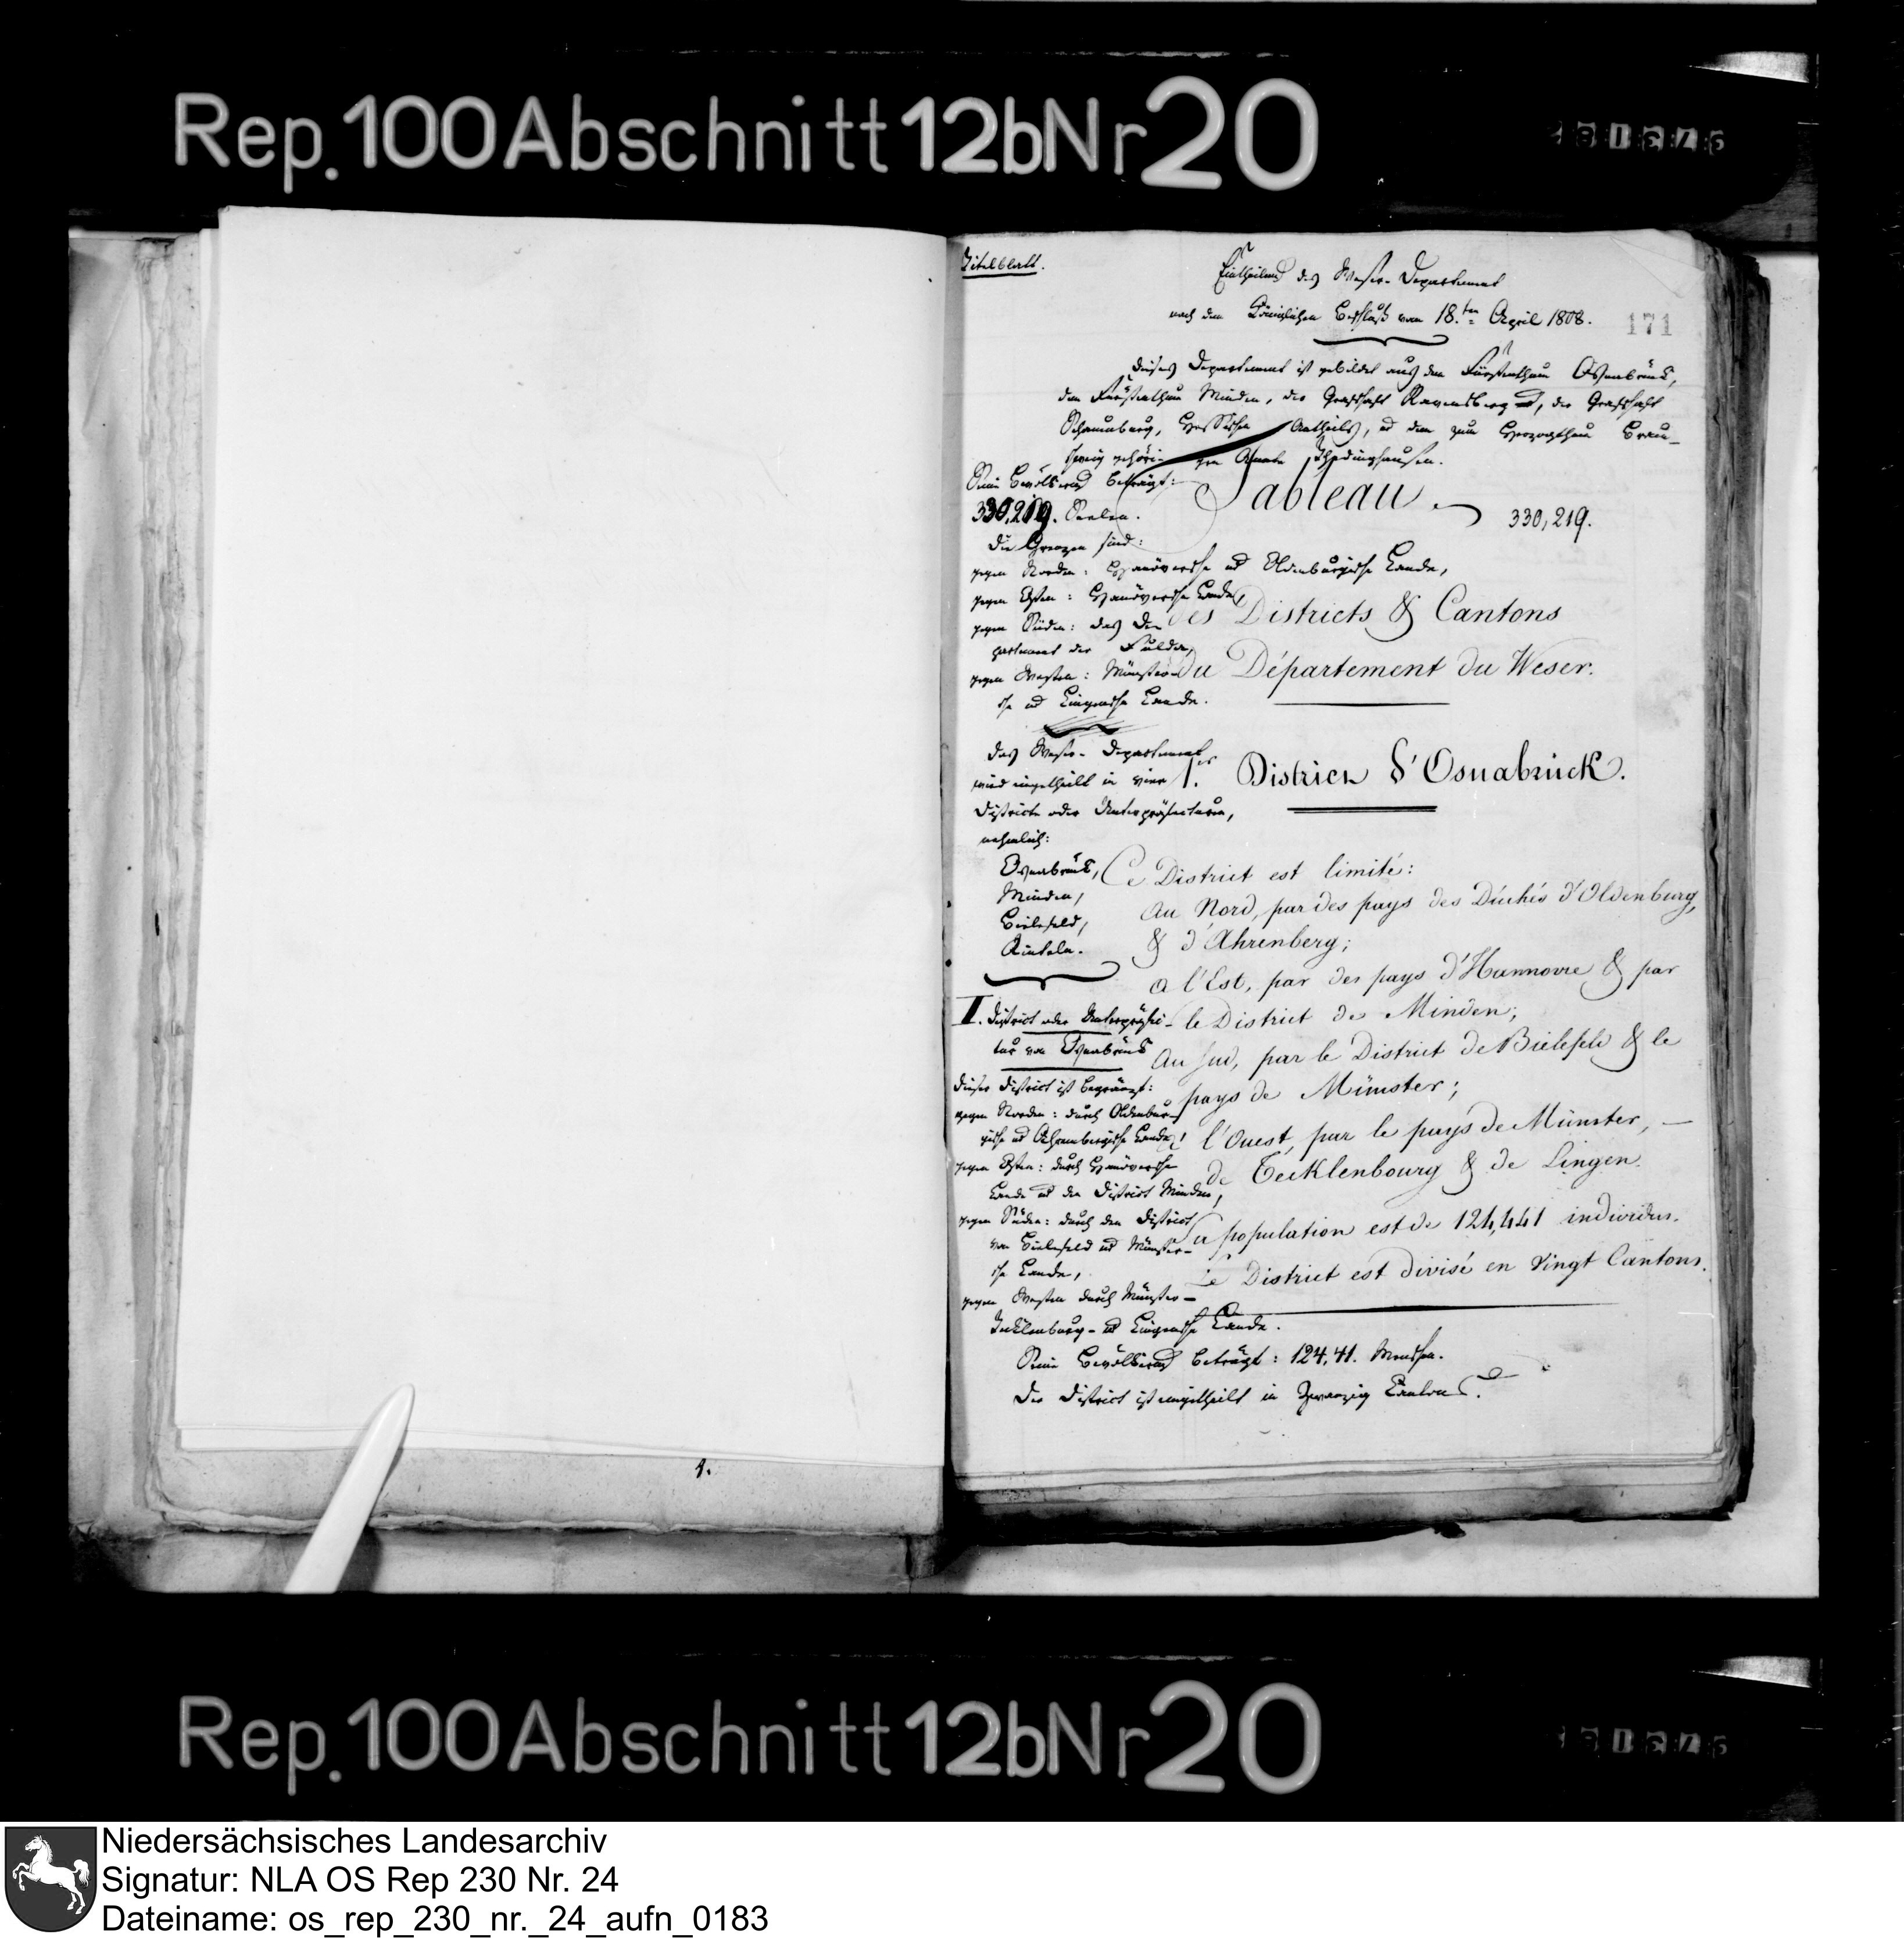 Rep. 100 Abschnitt 12b Nr 20
Titelblatt.
Eintheilung des Weser-Departement
nach dem Königlichen Beschluß vom 18.ten April 1808.
171
Dieses Departement ist gebildet aus dem Fürstenthum Osnabrück,
dem Fürstenthum Minden, der Grafschaft Ravensberg, der Grafschaft
Schaumburg, Hessischen Antheils, und dem zum Herzogthum Braun-
schweig gehöri- gen Amte Thedinghausen.
Seine Bevölkerung beträgt:
330,219. Seelen.
Tableau
330,219.
Die Grenzen sind:
gegen Norden: Hanöversche und Oldenburgische Lande,
gegen Osten: Hanöversche Lande,
gegen Süden: das De-
partement der Fulda,
gegen Westen: Münster-
sche und Lingensche Lande.
des Districts & Cantons
du Département du Weser.
Das Weser-Departement
wird eingetheilt in vier
Districte oder Unterpräfecturen,
nehmlich:
Osnabrück,
Minden,
Bielefeld,
Rinteln.
1.er District d'Osnabrück.
Ce District est limité:
Au Nord, par des pays des Duchés d'Oldenburg,
& d'Ahrenberg;
a l'Est, par des pays d'Hannovre & par
le District de Minden;
Au Sud, par le District de Bielefeld & le
pays de Münster;
a l'Ouest, par le pays de Münster,
de Tecklenbourg & de Lingen.
Sa population est de 124,441 individus.
Le District est divisé en Vingt Cantons.
I. District oder Unterpräfec-
tur von Osnabrück
Dieser District ist begränzt:
gegen Norden: durch Oldenbur-
gische und Ahrenbergische Lande,
gegen Osten: durch Hanöversche
Lande und den District Minden,
gegen Süden: durch den District
von Bielefeld und Münster-
sche Lande,
gegen Westen durch Münster-
Tecklenburg- und Lingensche Lande.
Seine Bevölkerung beträgt: 124,41. Menschen.
Der District ist eingetheilt in Zwanzig Cantons.
1.
Rep. 100 Abschnitt 12b Nr 20
Niedersächsisches Landesarchiv
Signatur: NLA OS Rep 230 Nr. 24
Dateiname: os_rep_230_nr._24_aufn_0183